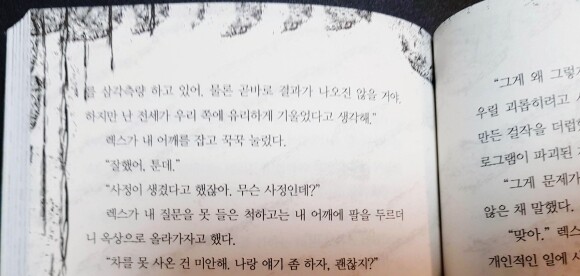 를 삼각측량 하고 있어. 물론 곧바로 결과가 나오진 않을 거야.
하지만 난 전세가 우리 쪽에 유리하게 기울었다고 생각해."
렉스가 내 어깨를 잡고 꾹꾹 눌렀다.
"잘했어, 툰데."
"사정이 생겼다고 했잖아. 무슨 사정인데?"
렉스가 내 질문을 못 들은 척하고는 내 어깨에 팔을 두르더
니 옥상으로 올라가자고 했다.
"차를 못 사온 건 미안해. 나랑 얘기 좀 하자, 괜찮지?"
"그게 왜 그렇게
우릴 괴롭히려고
만든 걸작을 더럽
로그램이 파괴된
"그게 문제가
않은 채 말했다.
"맞아." 렉스
개인적인 일에